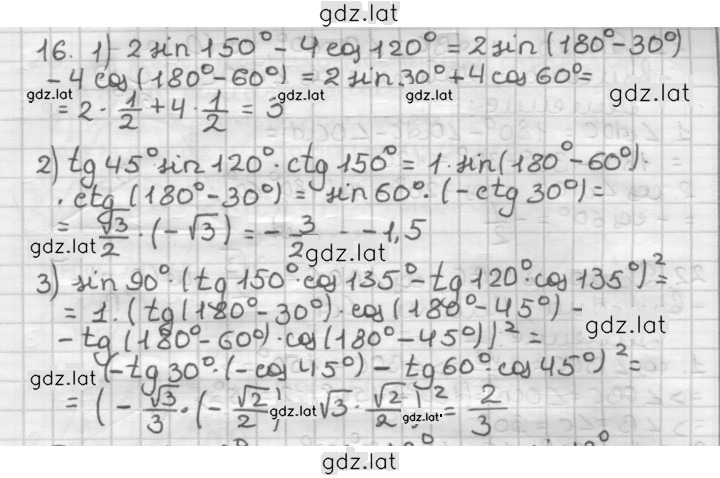 gdz.lat
16. 1) 2 sin 150° - 4 cos 120° = 2 sin (180° - 30°)
- 4 cos (180° - 60°) = 2 sin 30° + 4 cos 60° =
gdz.lat gdz.lat gdz.lat gdz.lat
= 2 · 1/2 + 4 · 1/2 = 3
2) tg 45° sin 120° · ctg 150° = 1 · sin (180° - 60°) ·
· ctg (180° - 30°) = sin 60° · (- ctg 30°) =
= √3/2 · (- √3) = - 3/2 - - 1,5
gdz.lat gdz.lat
3) sin 90° · (tg 150° · cos 135° - tg 120° · cos 135°)² =
= 1 · (tg (180° - 30°) · cos (180° - 45°) -
gdz.lat
- tg (180° - 60°) · cos (180° - 45°))² =
(- tg 30° · (- cos 45°) - tg 60° · cos 45°)² =
gdz.lat
= (- √3/3 · (- √2/2) √3 · √2/2)² = 2/3
gdz.lat gdz.lat
gdz.lat